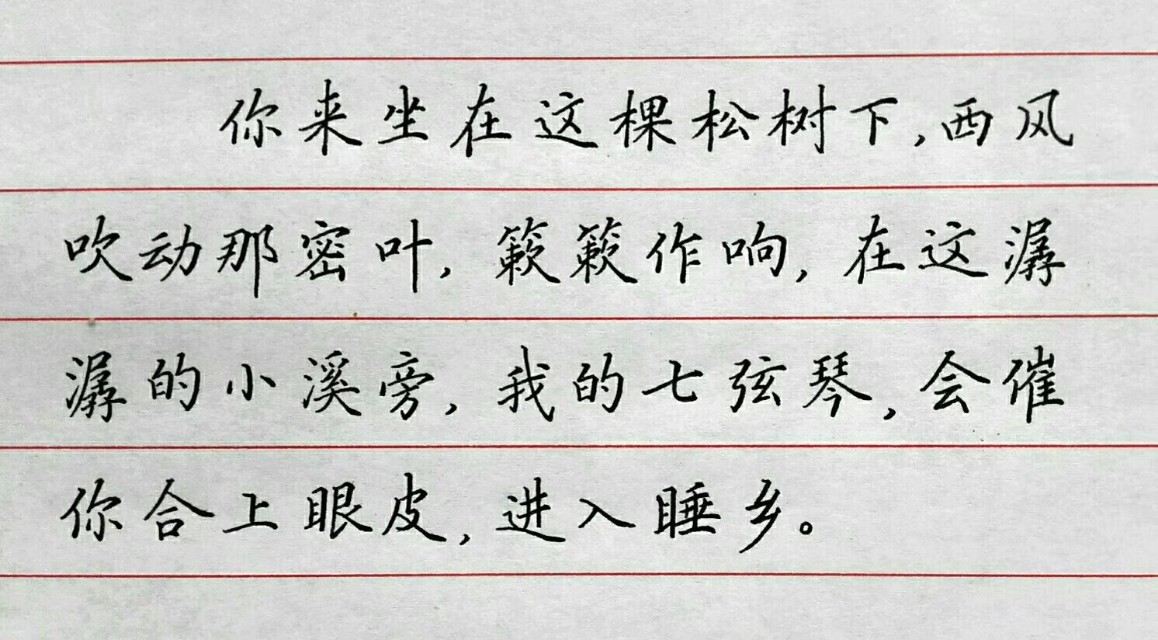 你来坐在这棵松树下,西风
吹动那密叶,簌簌作响,在这潺
潺的小溪旁,我的七弦琴,会催
你合上眼皮,进入睡乡。